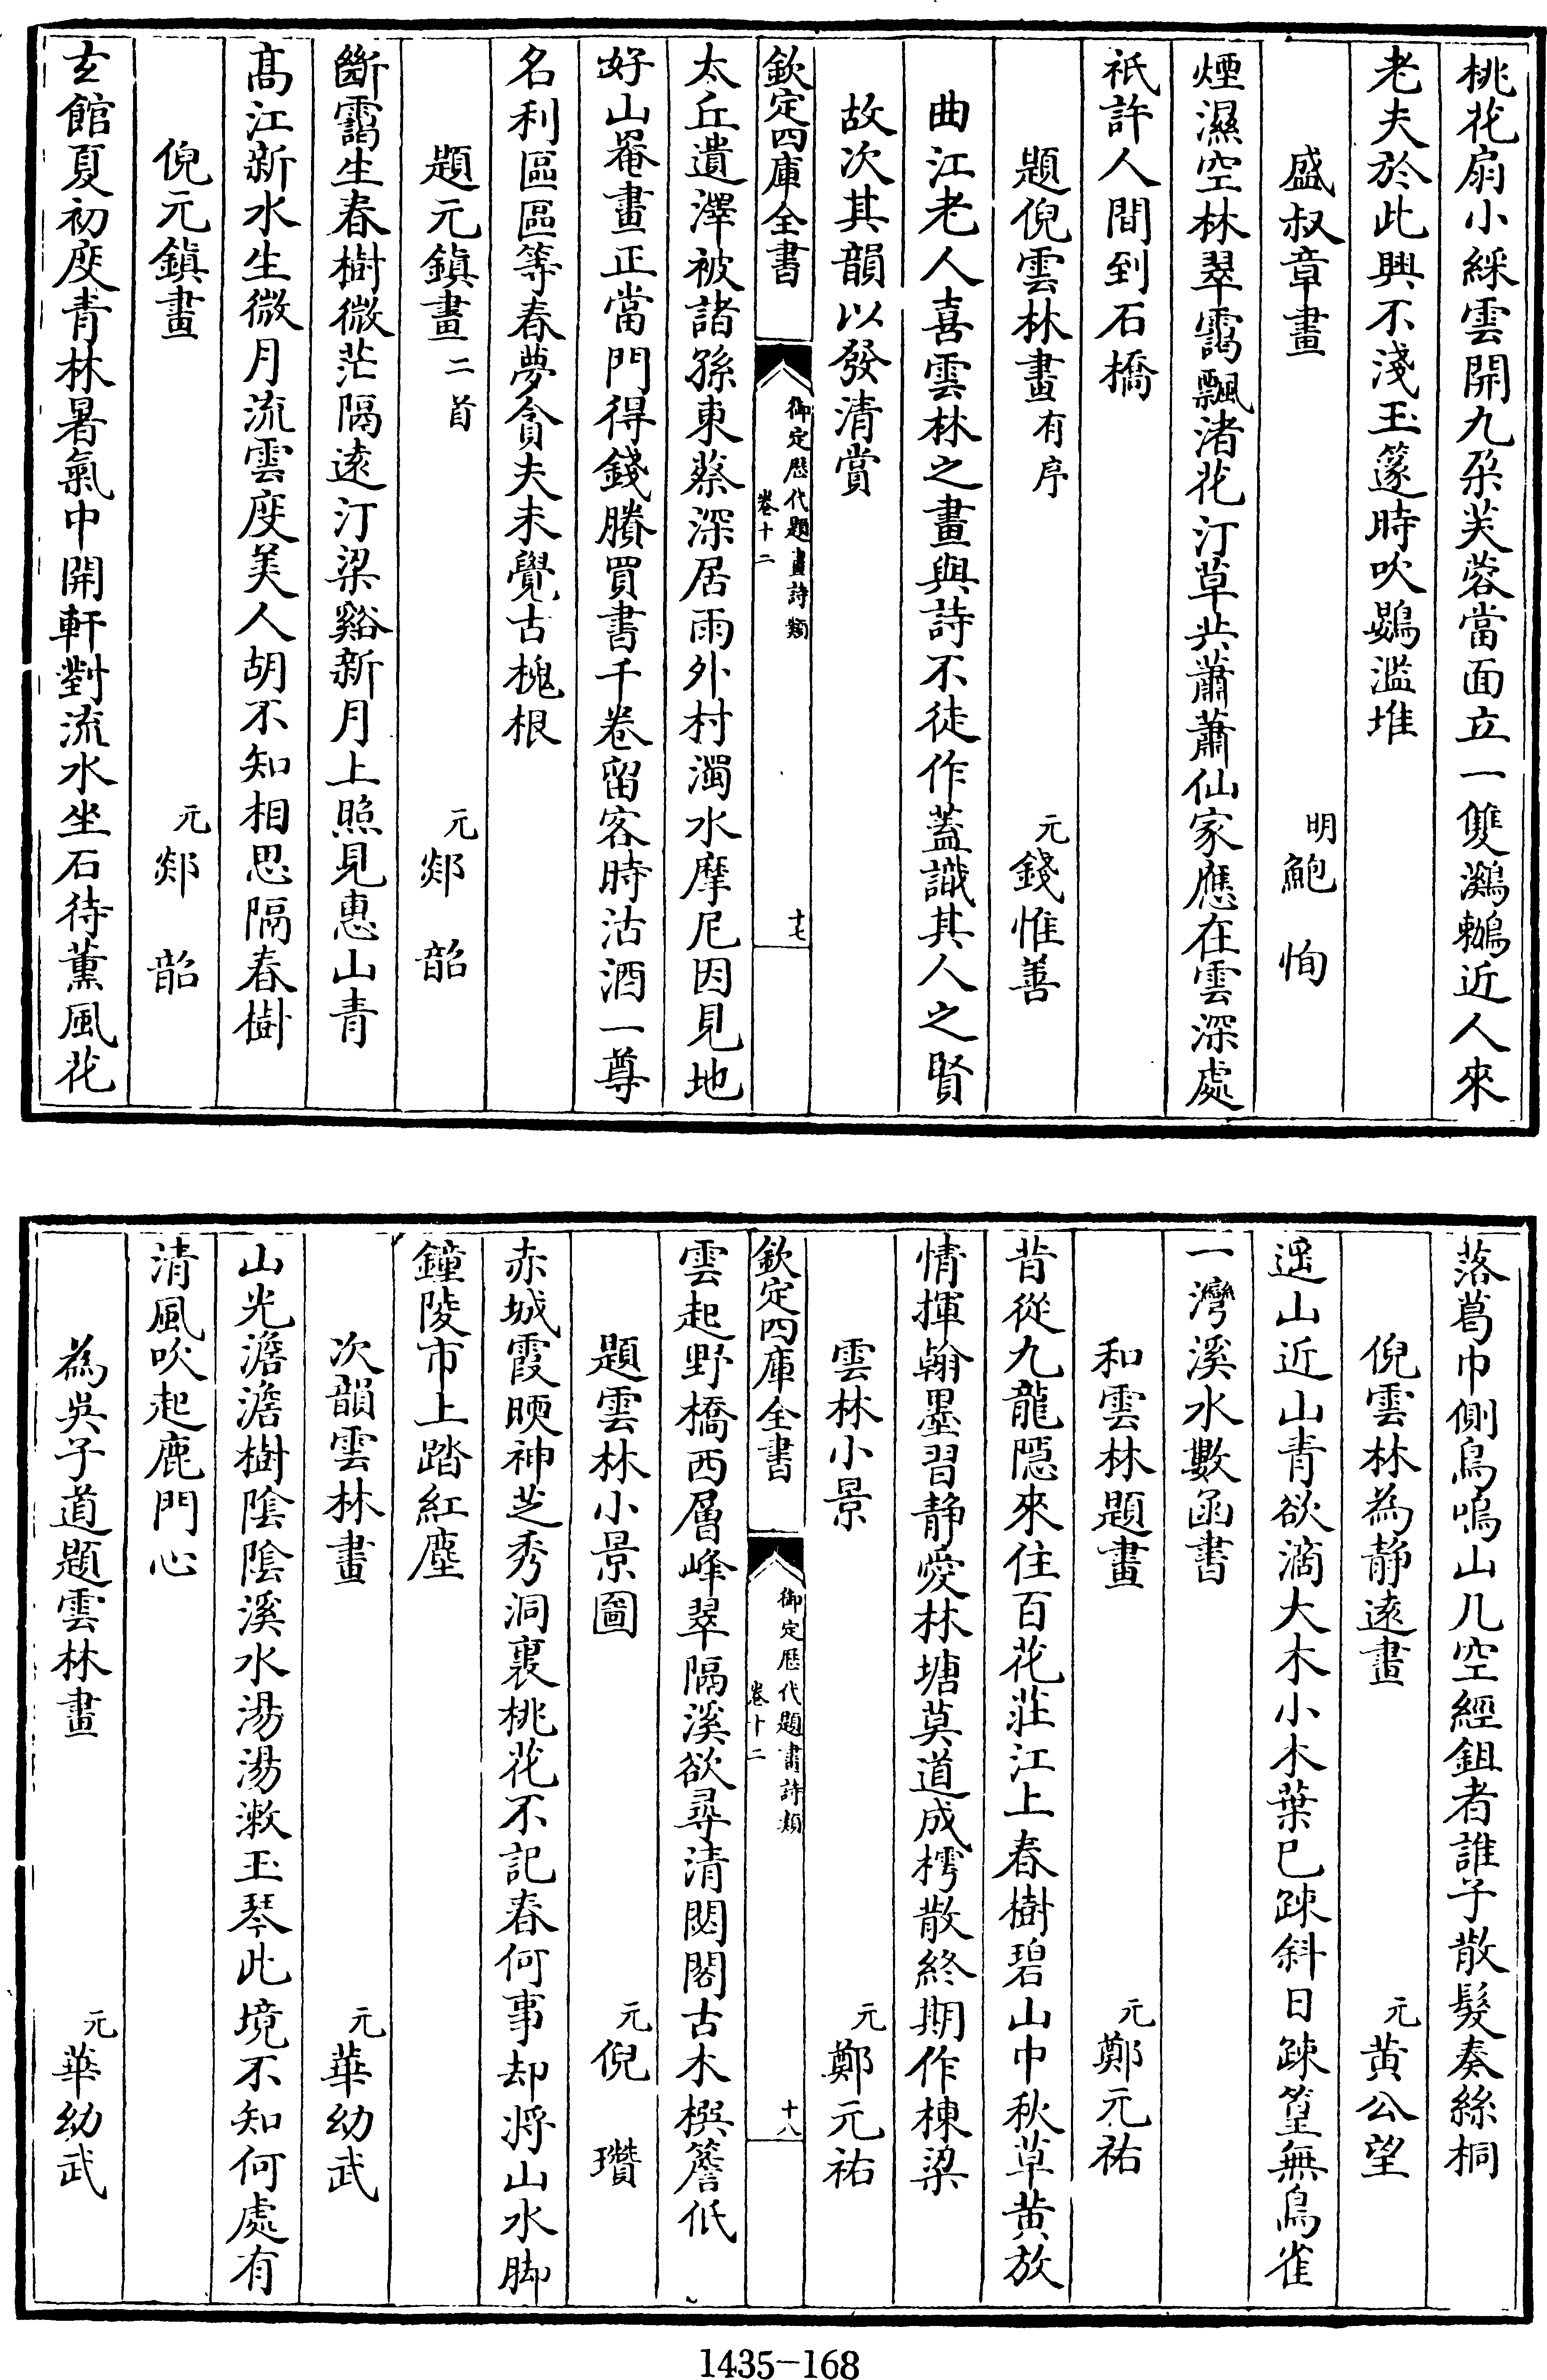 桃花扇小綵雲開九朶芙蓉當面立一雙鸂鶒近人來
老夫於此興不淺玉篴時吹鸂濫堆
盛叔章畫 明鮑恂
煙濕空林翠靄飄渚花汀草共蕭蕭仙家應在雲深處
祇許人間到石橋
題倪雲林畫有序 元錢惟善
曲江老人喜雲林之畫與詩不徒作蓋識其人之賢
故次其韻以發清賞
欽定四庫全書 御定歷代題畫詩類 卷十二 十七
太丘遺澤被諸孫東蔡深居雨外村濁水摩尼因見地
好山罨畫正當門得錢賸買書千卷留客時沽酒一尊
名利區區等春夢貪夫未覺古槐根
題元鎮畫二首 元郯韶
斷靄生春樹微茫隔遠汀梁谿新月上照見惠山青
髙江新水生微月流雲度美人胡不知相思隔春樹
倪元鎮畫 元郯韶
玄館夏初度青林暑氣中開軒對流水坐石待薰風花
落葛巾側鳥鳴山几空經鉏者誰子散髮奏絲桐
倪雲林為静遠畫 元黄公望
遥山近山青欲滴大木小木葉已疎斜日疎篁無鳥雀
一灣溪水數函書
和雲林題畫 元鄭元祐
昔從九龍隠來住百花莊江上春樹碧山巾秋草黄放
情揮翰墨習静愛林塘莫道成樗散終期作棟梁
雲林小景 元鄭元祐
欽定四庫全書 御定歷代題畫詩類 卷十二 十八
雲起野橋西層峰翠隔溪欲尋清閟閣古木榠簷低
題雲林小景圖 元倪瓚
赤城霞暎神芝秀洞裏桃花不記春何事却将山水脚
鐘陵市上踏紅塵
次韻雲林畫 元華幼武
山光澹澹樹陰陰溪水湯湯漱玉琴此境不知何處有
清風吹起鹿門心
為吳子道題雲林畫 元華幼武
1435-168